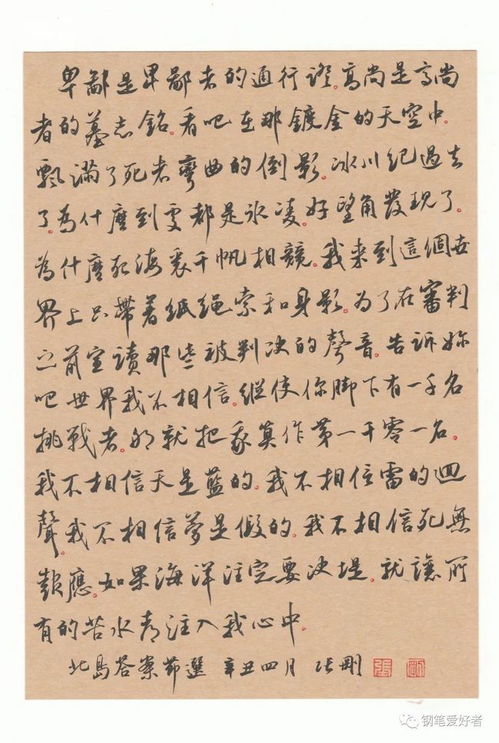 卑鄙是卑鄙者的通行證。高尚是高尚
者的墓志銘。看吧在那鍍金的天空中。
飄滿了死者彎曲的倒影。冰川紀過去
了。為什麼到处都是冰凌。好望角發现了。
為什麼死海裏千帆相競。我来到這個世
界上只帶著紙绳索和身影。为了在審判
之前宣读那些被判决的聲音。告訴妳
吧世界我不相信。縱使你脚下有一千名
挑戰者。那就把我算作第一千零一名。
我不相信天是藍的。我不相信雷的迴
聲。我不相信夢是假的。我不相信死無
報應。如果海洋注定要决堤。就讓所
有的苦水都注入我心中。
北島答案節選 辛丑四月 张剛
钢笔爱好者